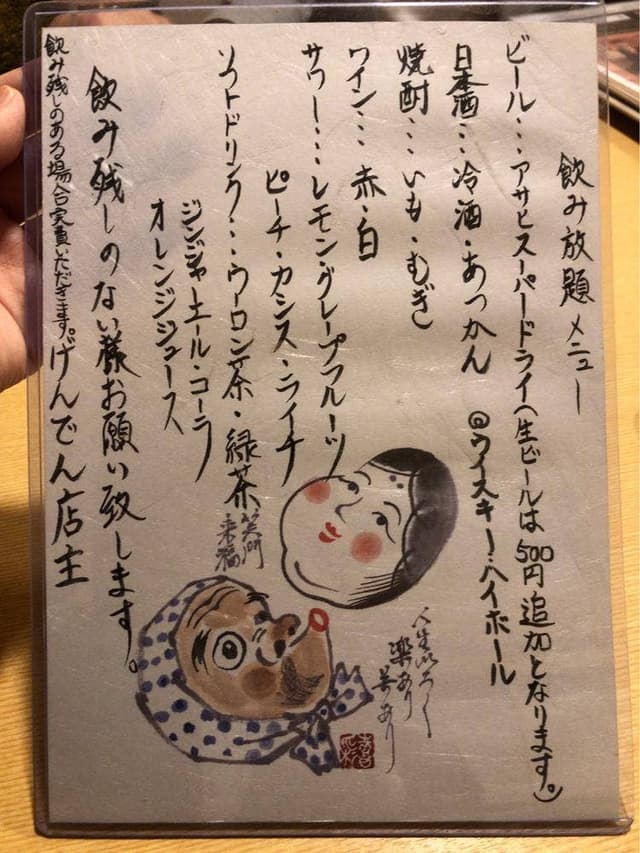 飲み放題 メニュー
ビール…アサヒスーパードライ(生ビールは500円追加となります。)
日本酒…冷酒・あつかん ◎ウイスキー…ハイボール
焼酎…いも・むぎ
ワイン…赤・白
サワー…レモン・グレープフルーツ
ピーチ・カシス・ライチ
ソフトドリンク…ウーロン茶・緑茶
ジンジャーエール・コーラ
オレンジジュース
飲み残しのない様お願い致します。
飲み残しのある場合実費いただきます。げんでん店主
笑門
来福
人生いろいろ
楽あり
苦あり